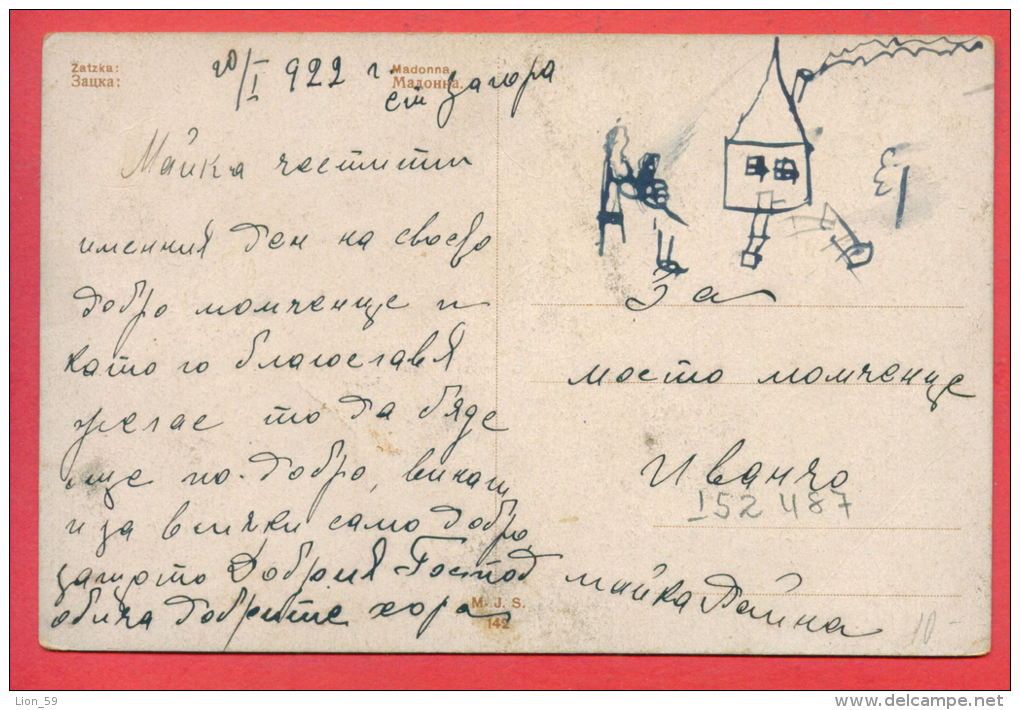 Zatzka:
Зацка:
Madonna.
Мадонна.
20/I 922 г
ст Загора
Майка честити
именния ден на своето
добро момченце и
като го благославя
желае то да бъде
още по-добро, винаги
и за всички само добро,
защото Добрия Господ
обича добрите хора
M. J. S.
142
За
моето момченце
Иванчо
152487
майка Дагина
10-
Lion_59
www.delcampe.net